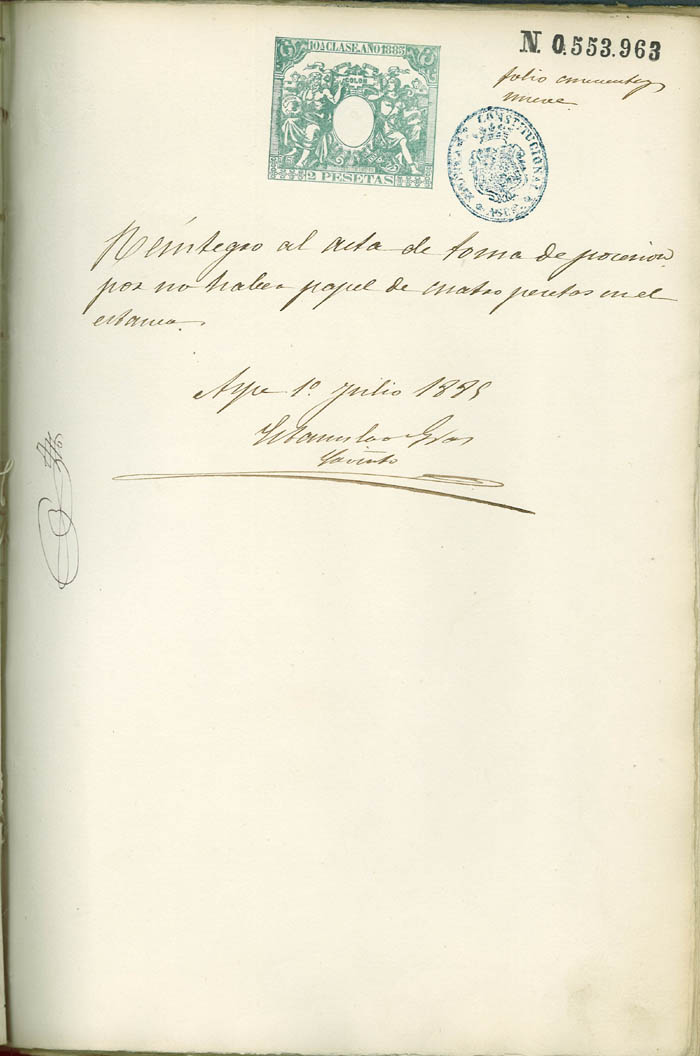 10ª CLASE. AÑO 1885
COLON
2 PESETAS
N. 0.553.963
folio cincuenta y
nueve
CONSTITUCIONAL
ASPE
Reintegro al acta de toma de pocesion
por no haber papel de cuatro pesetas en el
estanco.
Aspe 1º. Julio 1885
Estanislao